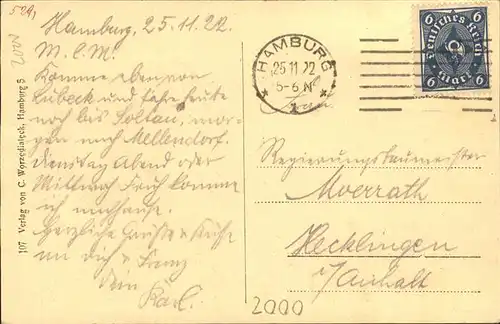 Hamburg, 25.11.22.
M. l. M.
Komme eben von
Lübeck und fahre heute
noch bis Soltau, mor-
gen nach Mellendorf.
Dienstag Abend oder
Mittwoch Früh komme
ich nachhause.
Herzliche Grüße & Küsse
an dich & Franz
Dein
Karl.
107 Verlag von C. Worzedialeck, Hamburg 5
HAMBURG
25.11.22
5-6 N
6 Deutsches Reich 6
6 Mark 6
Frau
Regierungsbaumeister
Moerrath
Hecklingen
i/Anhalt
2000